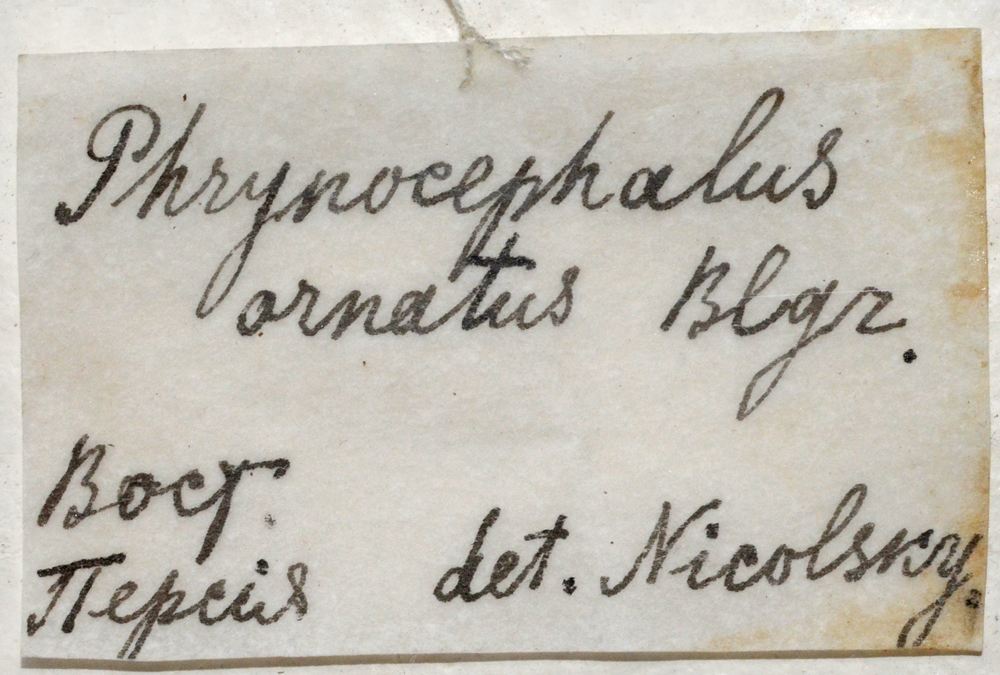 Phrynocephalus
ornatus Blgr.
Вост.
Персія det. Nicolsky.